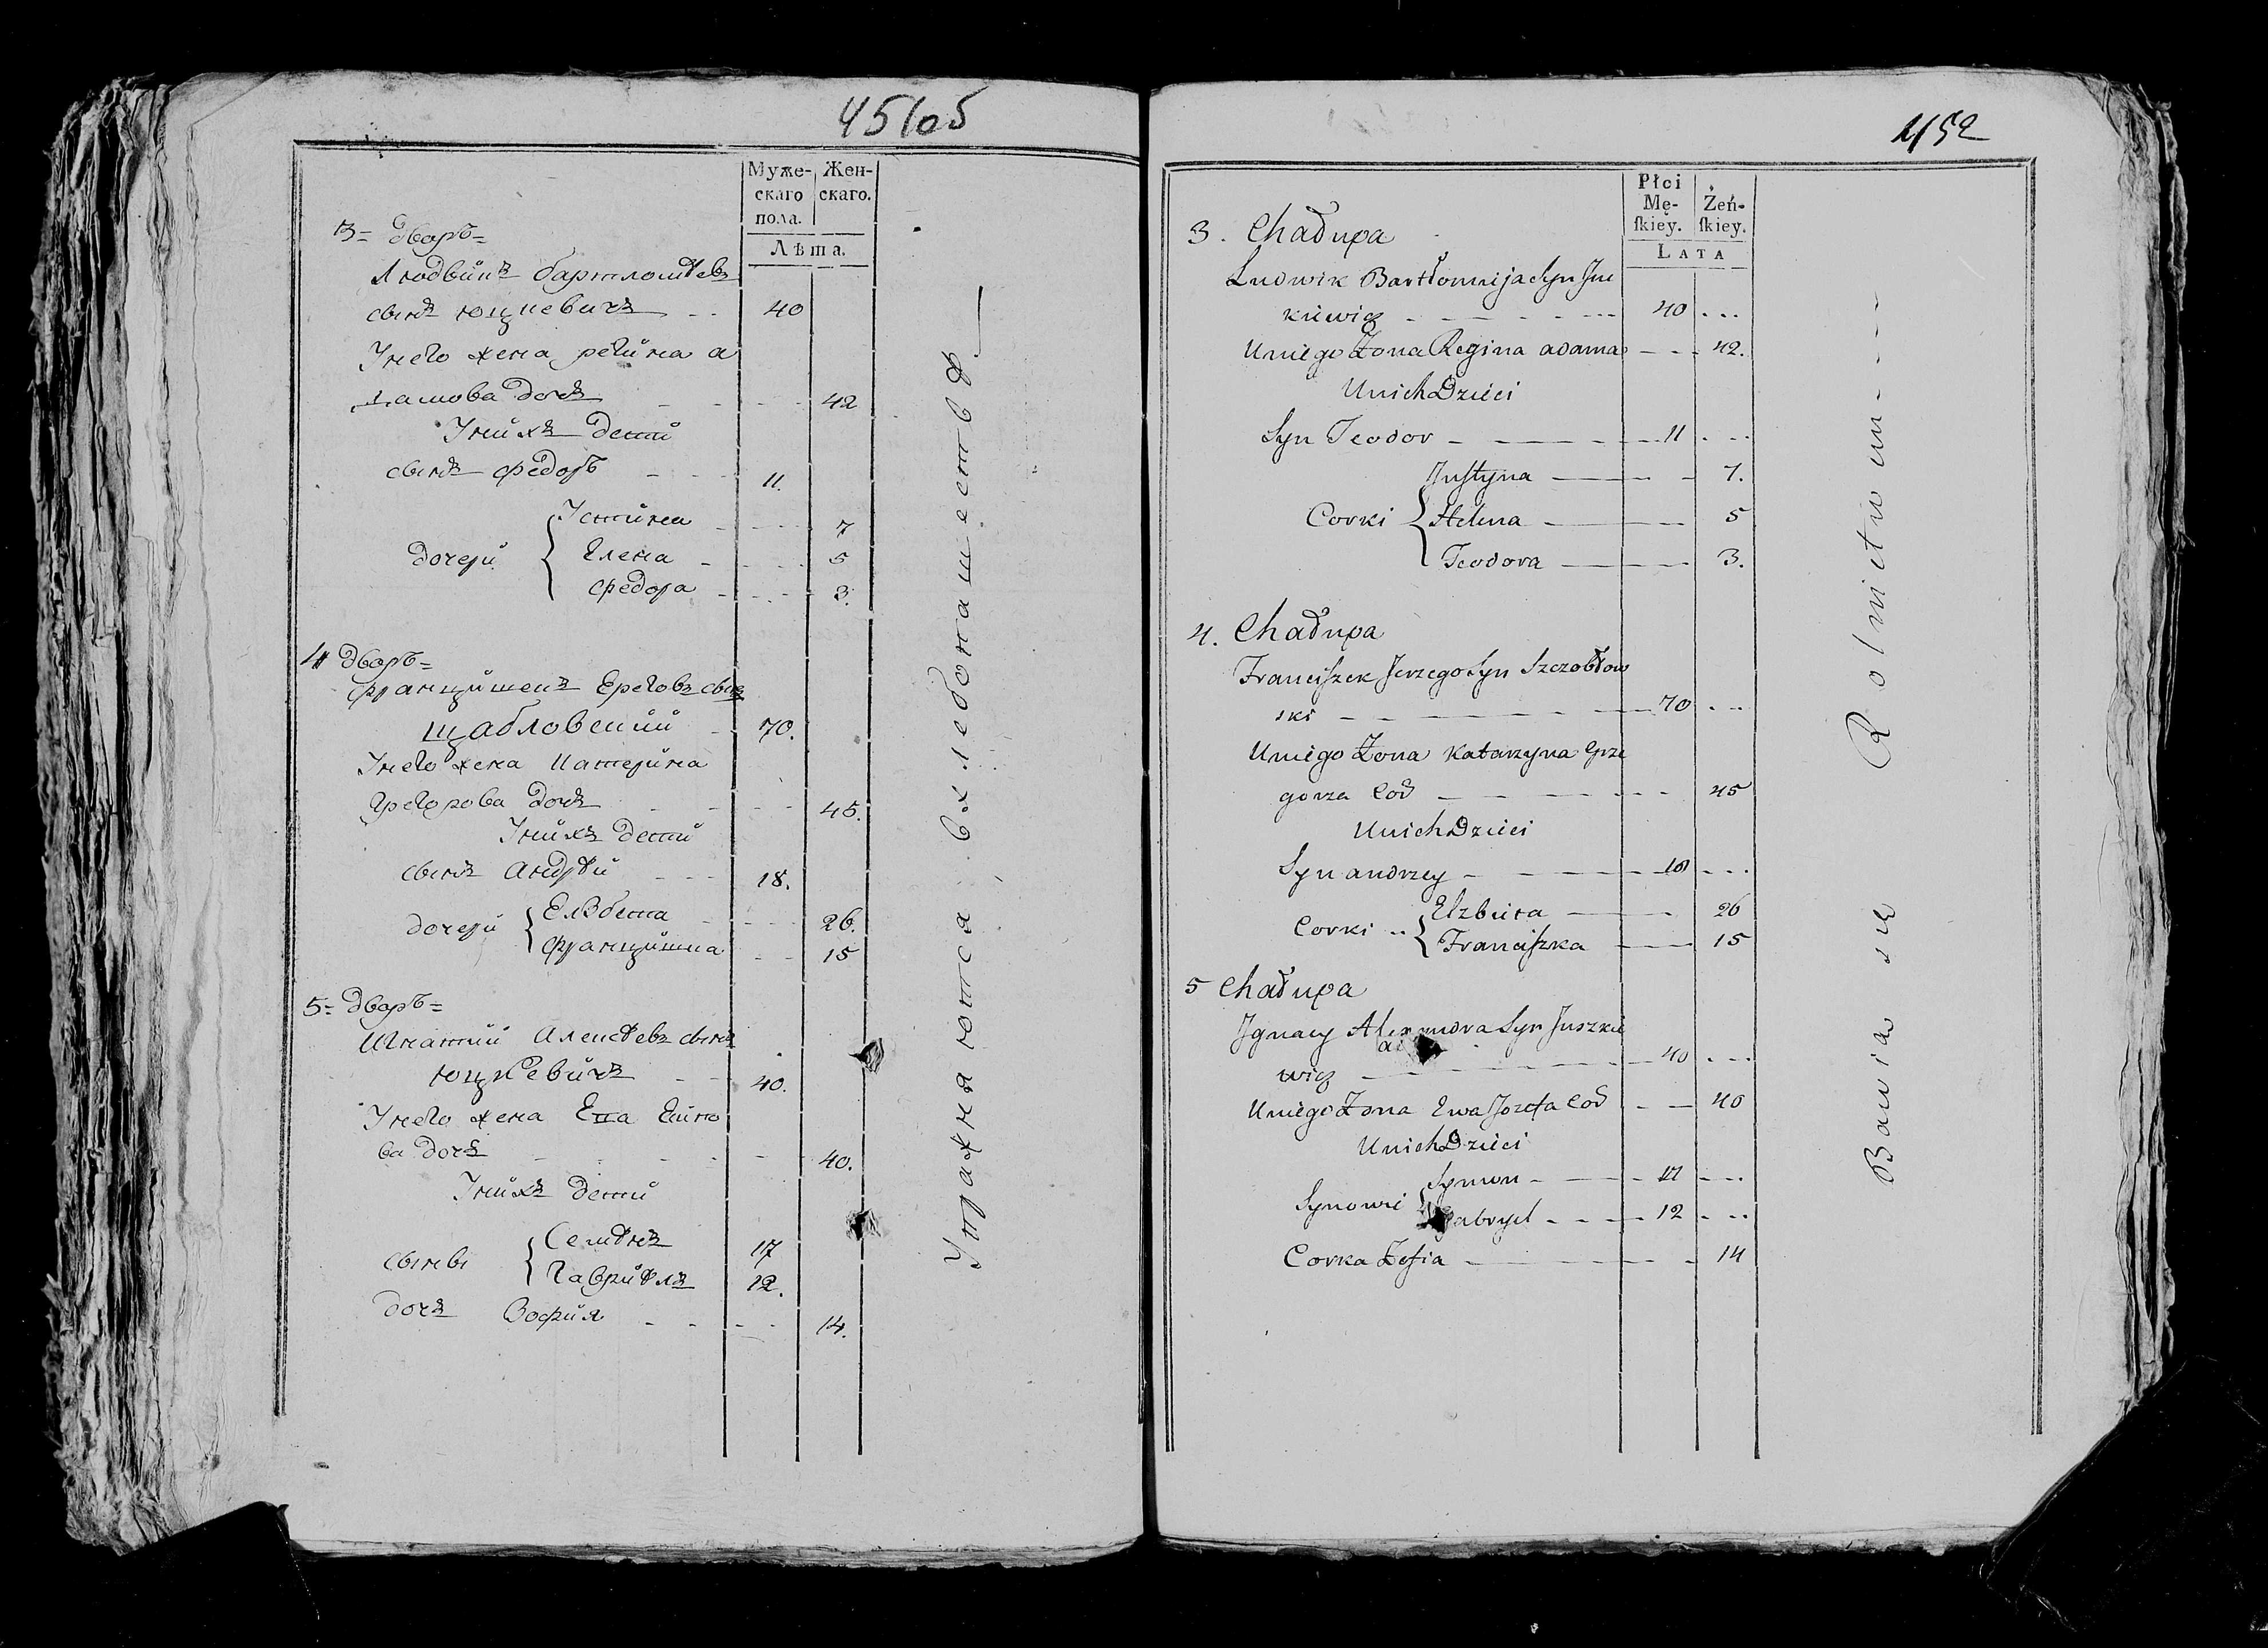 45105
Муже-
скаго
пола.
Жен-
скаго.
Лѣта.
3= дворъ=
Людвикъ бартломѣевъ
сынъ юцкевичъ 40
Унего жена регина а
дамова дочь 42
Унихъ дети
сынъ федоръ 11.
дочери
Устина 7
Елена 5
федора 3.
4 дворъ=
францишекъ Ереговъ сынъ
щабловский 70.
Унего жена катерина
Грегорова дочь 45.
Унихъ дети
сынъ андрѣи 18.
дочери
Елзбета 26.
францишка 15
5= дворъ=
Игнатий Алексѣевъ сынъ
юцкевичъ 40.
Унего жена Ева
ва дочь 40.
Унихъ дети
сынвы
Семѣнъ 17
Гаврийлъ 12.
дочь Зофия 14.
Упражняются в хлебопашествѣ
452
Płci
Mę-
ſkiey.
Żeń-
ſkiey.
LATA
3. Chałupa
Ludwik Bartłomieja Syn Ju
kiewicz 40 ...
Uniego Żona Regina adama 42.
Unich Dzieci
Syn Teodor 11 ...
Corki
Juſtyna 7.
Helena 5
Teodora 3.
4. Chałupa
Franciſzek Jerzego Syn Szczobłow
ski 70 ...
Uniego Żona Katarzyna Grze
gorza Cod 45
Unich Dzieci
Syn andrzey 18 ...
Corki
Elzbieta 26
Franciſzka 15
5 Chałupa
Jgnacy Alexandra Syn Juszkie
wicz 40 ...
Uniego Żona Ewa Jozefa Cod 40
Unich Dzieci
Synowie
Symon 17 ...
Gabryel 12 ...
Corka Zofia 14
Bawia sie Rolnictwem